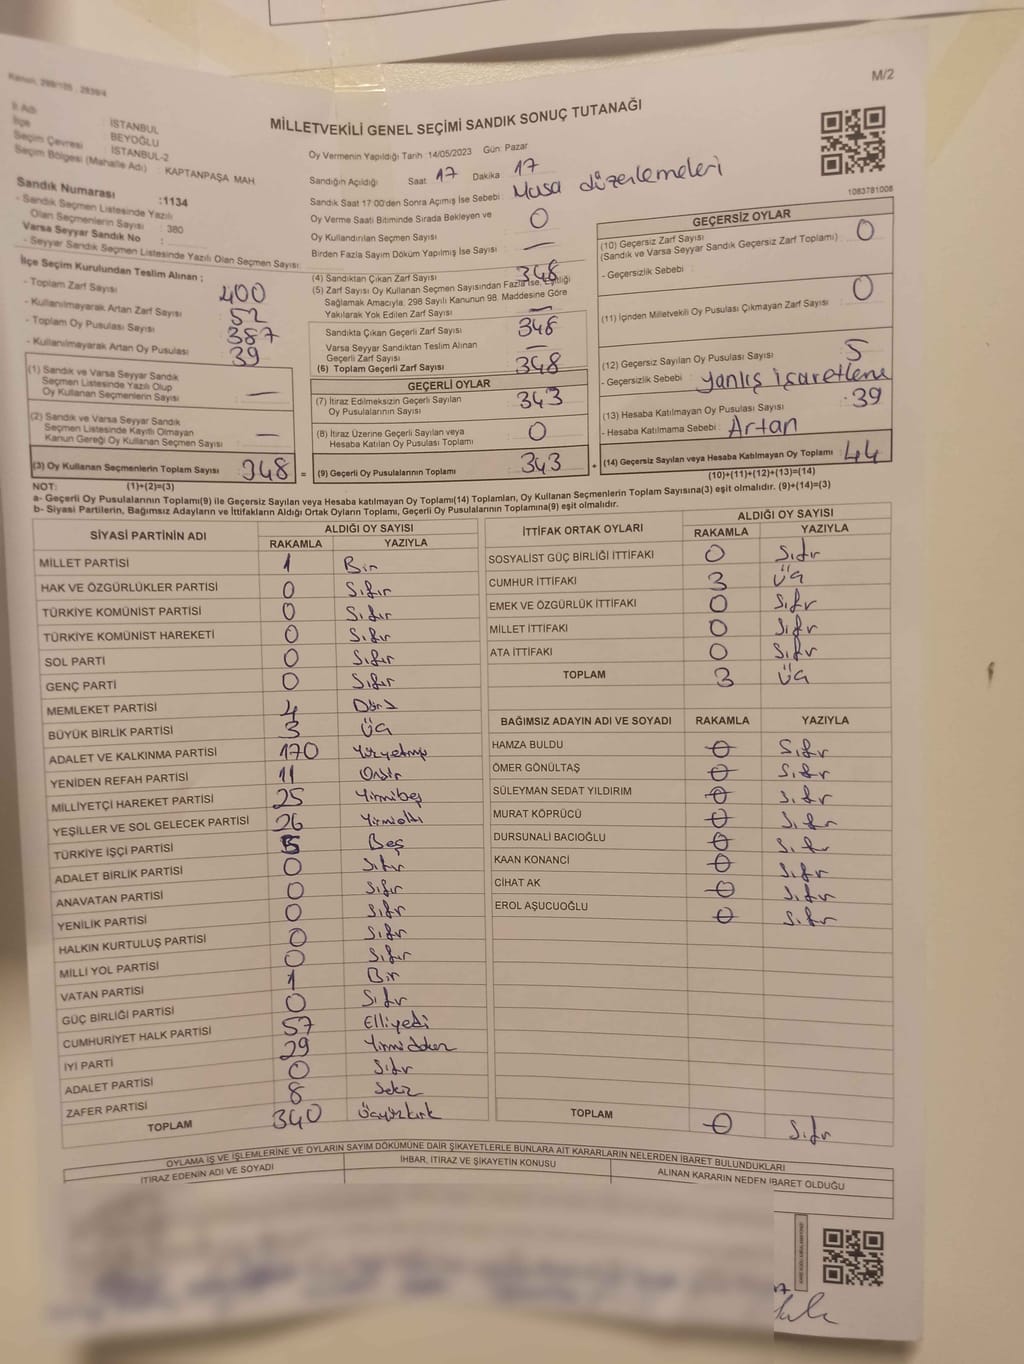 M/2
MİLLETVEKİLİ GENEL SEÇİMİ SANDIK SONUÇ TUTANAĞI
İl Adı : İSTANBUL
İlçe : BEYOĞLU
Seçim Çevresi : İSTANBUL-2
Seçim Bölgesi (Mahalle Adı) : KAPTANPAŞA MAH.
Sandık Numarası :1134
- Sandık Seçmen Listesinde Yazılı
Olan Seçmenlerin Sayısı : 380
Varsa Seyyar Sandık No :
- Seyyar Sandık Seçmen Listesinde Yazılı Olan Seçmen Sayısı:
İlçe Seçim Kurulundan Teslim Alınan ;
- Toplam Zarf Sayısı 400
- Kullanılmayarak Artan Zarf Sayısı 52
- Toplam Oy Pusulası Sayısı 387
- Kullanılmayarak Artan Oy Pusulası 39
(1) Sandık ve Varsa Seyyar Sandık
Seçmen Listesinde Yazılı Olup
Oy Kullanan Seçmenlerin Sayısı —
(2) Sandık ve Varsa Seyyar Sandık
Seçmen Listesinde Kayıtlı Olmayan
Kanun Gereği Oy Kullanan Seçmen Sayısı —
(3) Oy Kullanan Seçmenlerin Toplam Sayısı 348 =
(1)+(2)=(3)
Oy Vermenin Yapıldığı Tarih 14/05/2023 Gün: Pazar
Sandığın Açıldığı Saat 17 Dakika 17
Sandık Saat 17:00'den Sonra Açımış İse Sebebi Masa düzenlemeleri
Oy Verme Saati Bitiminde Sırada Bekleyen ve
Oy Kullandırılan Seçmen Sayısı 0
Birden Fazla Sayım Döküm Yapılmış İse Sayısı —
(4) Sandıktan Çıkan Zarf Sayısı 348
(5) Zarf Sayısı Oy Kullanan Seçmen Sayısından Fazla İse, Eşitliği
Sağlamak Amacıyla, 298 Sayılı Kanunun 98. Maddesine Göre
Yakılarak Yok Edilen Zarf Sayısı —
Sandıkta Çıkan Geçerli Zarf Sayısı 348
Varsa Seyyar Sandıktan Teslim Alınan
Geçerli Zarf Sayısı —
(6) Toplam Geçerli Zarf Sayısı 348
GEÇERLİ OYLAR
(7) İtiraz Edilmeksizin Geçerli Sayılan
Oy Pusulalarının Sayısı 343
(8) İtiraz Üzerine Geçerli Sayılan veya
Hesaba Katılan Oy Pusulası Toplamı 0
(9) Geçerli Oy Pusulalarının Toplamı 343 +
1083781008
GEÇERSİZ OYLAR
(10) Geçersiz Zarf Sayısı
(Sandık ve Varsa Seyyar Sandık Geçersiz Zarf Toplamı) : 0
- Geçersizlik Sebebi :
(11) İçinden Milletvekili Oy Pusulası Çıkmayan Zarf Sayısı 0
(12) Geçersiz Sayılan Oy Pusulası Sayısı 5
- Geçersizlik Sebebi : yanlış işaretleme
(13) Hesaba Katılmayan Oy Pusulası Sayısı : 39
- Hesaba Katılmama Sebebi : Artan
(14) Geçersiz Sayılan veya Hesaba Katılmayan Oy Toplamı 44
(10)+(11)+(12)+(13)=(14)
NOT:
a- Geçerli Oy Pusulalarının Toplamı(9) ile Geçersiz Sayılan veya Hesaba Katılmayan Oy Toplamı(14) Toplamları, Oy Kullanan Seçmenlerin Toplam Sayısına(3) eşit olmalıdır. (9)+(14)=(3)
b- Siyasi Partilerin, Bağımsız Adayların ve İttifakların Aldığı Ortak Oyların Toplamı, Geçerli Oy Pusulalarının Toplamına(9) eşit olmalıdır.
SİYASİ PARTİNİN ADI ALDIĞI OY SAYISI
RAKAMLA YAZIYLA
MİLLET PARTİSİ 1 Bir
HAK VE ÖZGÜRLÜKLER PARTİSİ 0 Sıfır
TÜRKİYE KOMÜNİST PARTİSİ 0 Sıfır
TÜRKİYE KOMÜNİST HAREKETİ 0 Sıfır
SOL PARTİ 0 Sıfır
GENÇ PARTİ 0 Sıfır
MEMLEKET PARTİSİ 4 Dört
BÜYÜK BİRLİK PARTİSİ 3 Üç
ADALET VE KALKINMA PARTİSİ 170 Yüzyetmiş
YENİDEN REFAH PARTİSİ 11 Onbir
MİLLİYETÇİ HAREKET PARTİSİ 25 Yirmibeş
YEŞİLLER VE SOL GELECEK PARTİSİ 26 Yirmialtı
TÜRKİYE İŞÇİ PARTİSİ 5 Beş
ADALET BİRLİK PARTİSİ 0 Sıfır
ANAVATAN PARTİSİ 0 Sıfır
YENİLİK PARTİSİ 0 Sıfır
HALKIN KURTULUŞ PARTİSİ 0 Sıfır
MİLLİ YOL PARTİSİ 0 Sıfır
VATAN PARTİSİ 1 Bir
GÜÇ BİRLİĞİ PARTİSİ 0 Sıfır
CUMHURİYET HALK PARTİSİ 57 Elliyedi
İYİ PARTİ 29 Yirmidokuz
ADALET PARTİSİ 0 Sıfır
ZAFER PARTİSİ 8 Sekiz
TOPLAM 340 Üçyüzkırk
İTTİFAK ORTAK OYLARI ALDIĞI OY SAYISI
RAKAMLA YAZIYLA
SOSYALİST GÜÇ BİRLİĞİ İTTİFAKI 0 Sıfır
CUMHUR İTTİFAKI 3 Üç
EMEK VE ÖZGÜRLÜK İTTİFAKI 0 Sıfır
MİLLET İTTİFAKI 0 Sıfır
ATA İTTİFAKI 0 Sıfır
TOPLAM 3 Üç
BAĞIMSIZ ADAYIN ADI VE SOYADI RAKAMLA YAZIYLA
HAMZA BULDU 0 Sıfır
ÖMER GÖNÜLTAŞ 0 Sıfır
SÜLEYMAN SEDAT YILDIRIM 0 Sıfır
MURAT KÖPRÜCÜ 0 Sıfır
DURSUNALİ BACIOĞLU 0 Sıfır
KAAN KONANCİ 0 Sıfır
CİHAT AK 0 Sıfır
EROL AŞUCUOĞLU 0 Sıfır
TOPLAM 0 Sıfır
OYLAMA İŞ VE İŞLEMLERİNE VE OYLARIN SAYIM DÖKÜMÜNE DAİR ŞİKAYETLERLE BUNLARA AİT KARARLARIN NELERDEN İBARET BULUNDUKLARI
İTİRAZ EDENİN ADI VE SOYADI İHBAR, İTİRAZ VE ŞİKAYETİN KONUSU ALINAN KARARIN NEDEN İBARET OLDUĞU